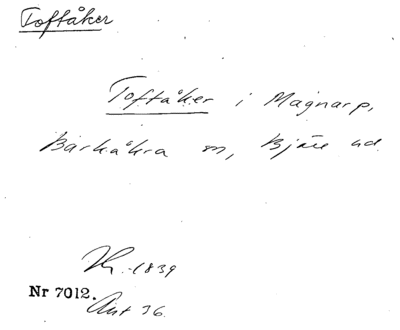 Toftåker
Toftåker i Magnarp,
Barkåkra sn, Bjäre hd
Hr. 1839
Nr 7012.
Avt 36.